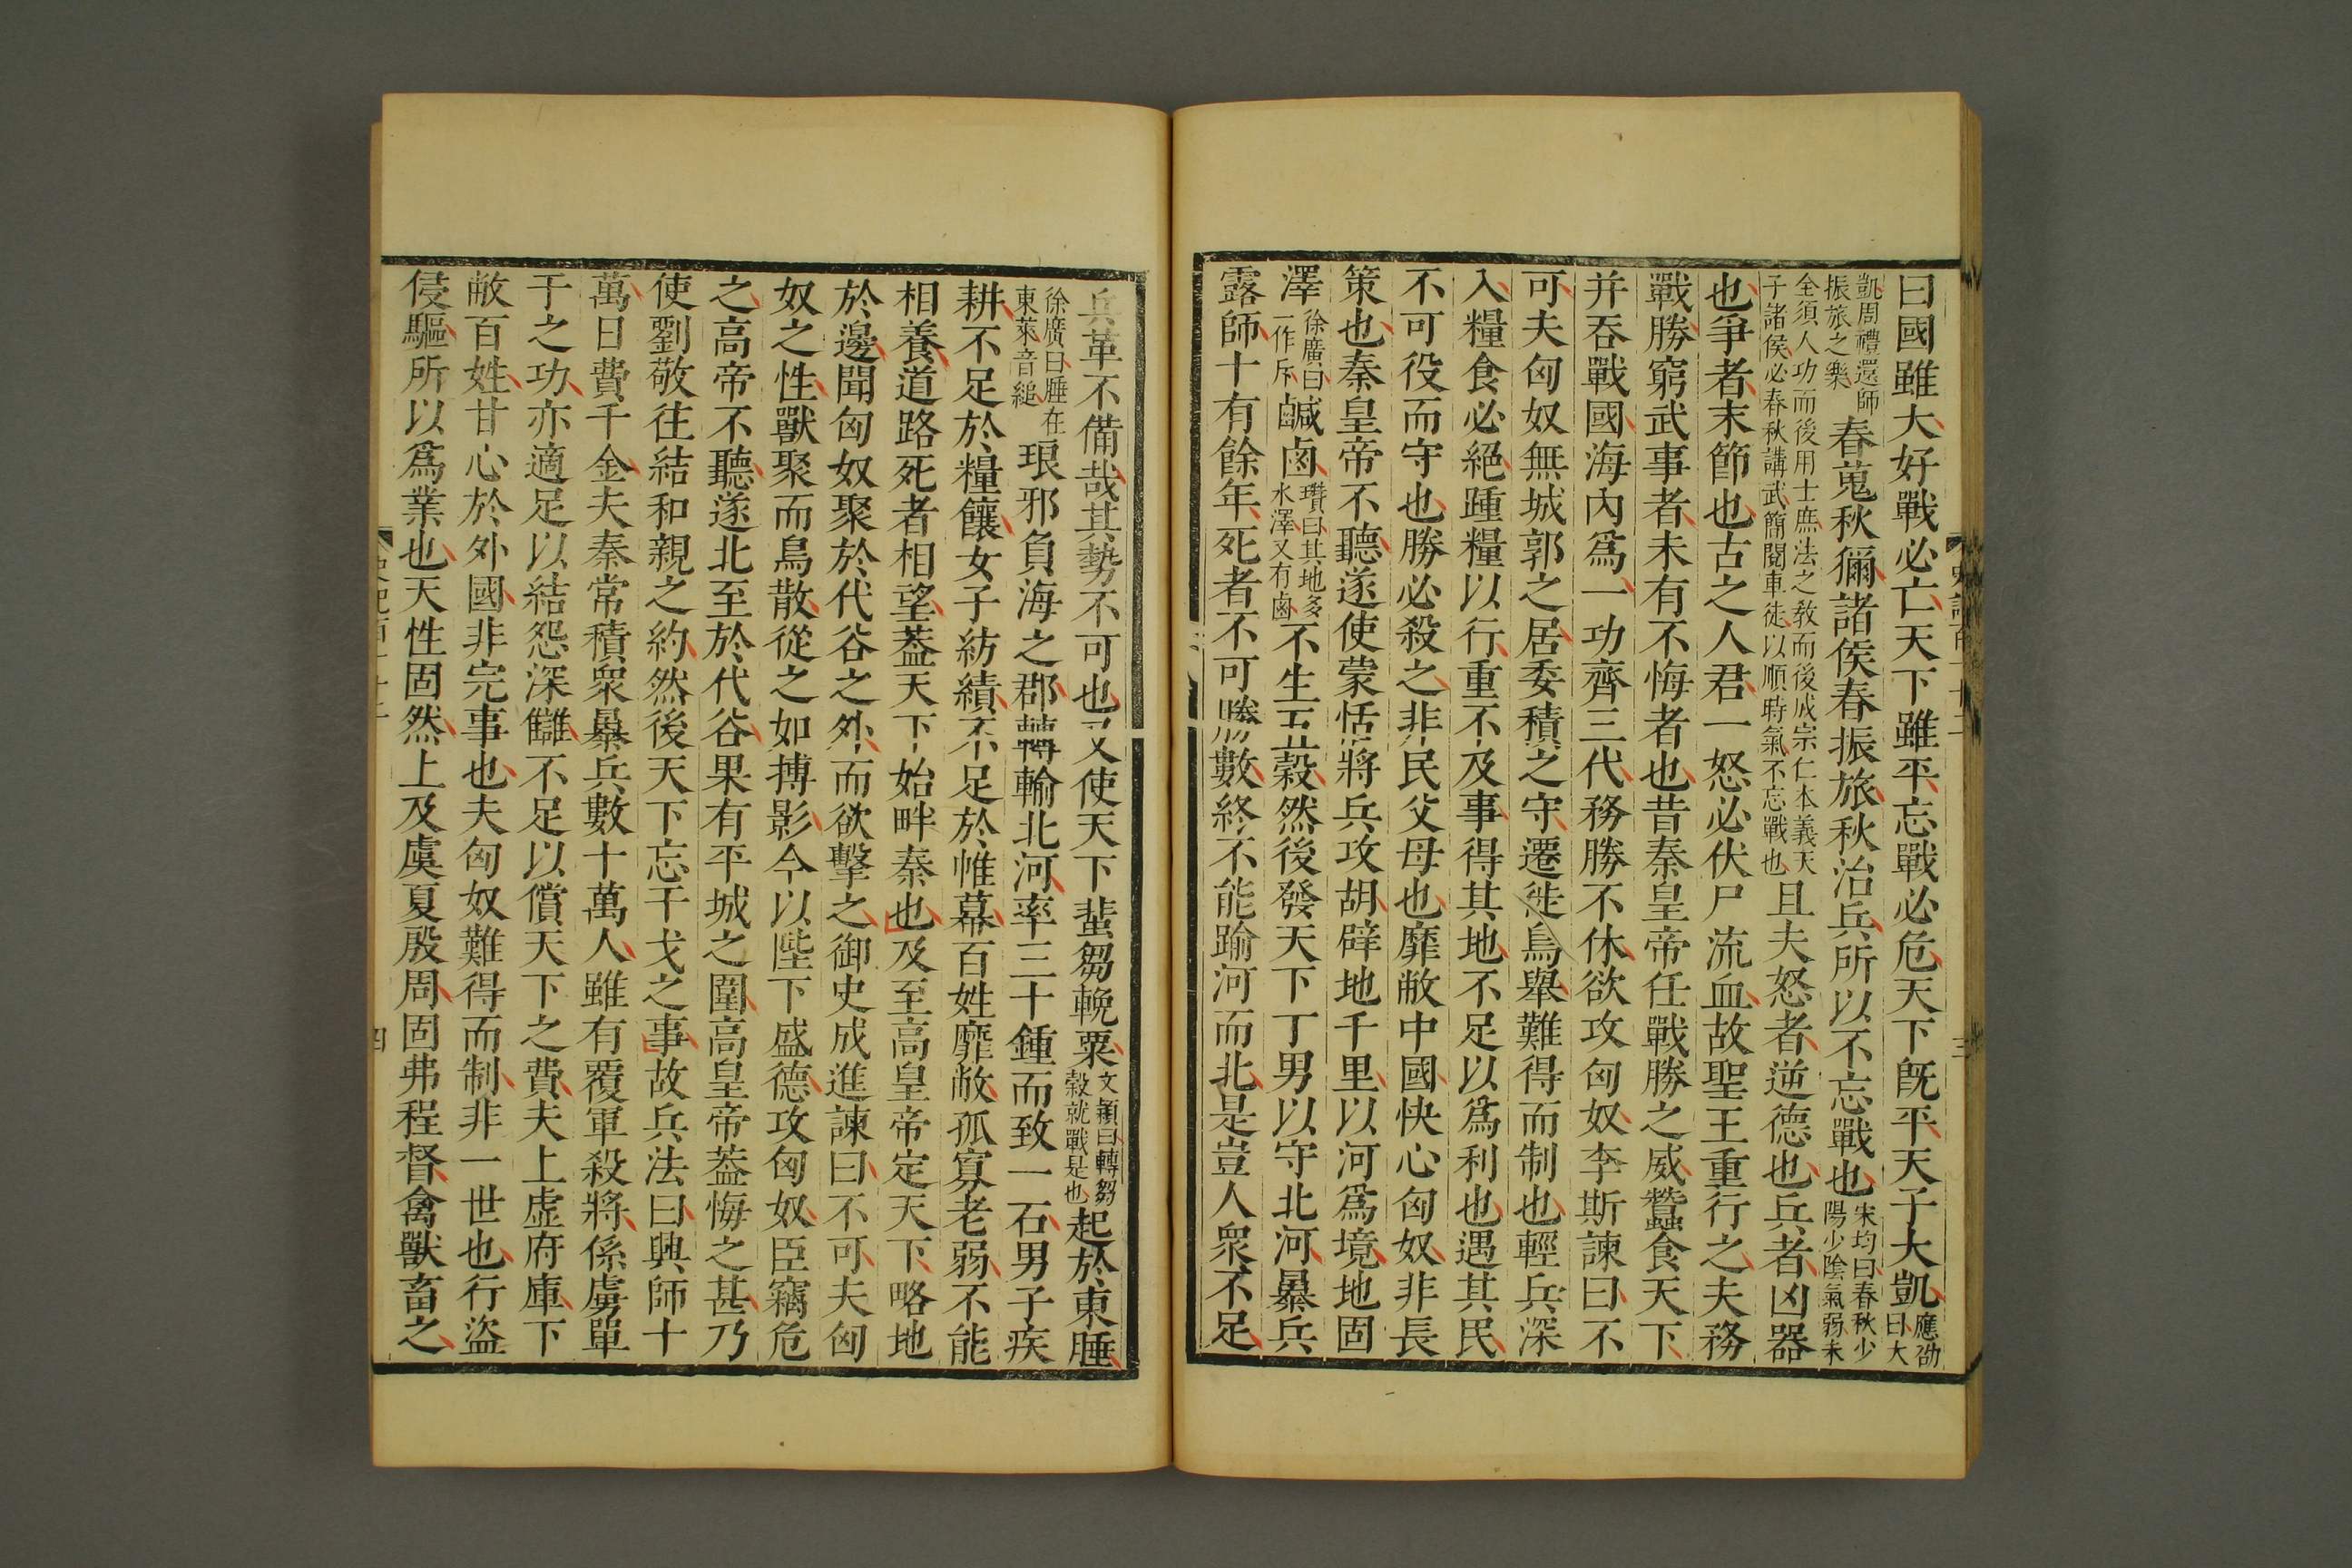 曰國雖大好戰必亡天下雖平忘戰必危天下既平天子大凱應劭曰大
凱周禮還師振旅之樂春蒐秋獮諸侯春振旅秋治兵所以不忘戰也宋均曰春秋少陽少陰氣弱未
全須人功而後用士庶法之教而後成宗仁本義天子諸侯必春秋講武簡閱車徒以順時氣不忘戰也且夫怒者逆德也兵者凶器
也爭者末節也古之人君一怒必伏尸流血故聖王重行之夫務
戰勝窮武事者未有不悔者也昔秦皇帝任戰勝之威蠶食天下
并吞戰國海內爲一功齊三代務勝不休欲攻匈奴李斯諫曰不
可夫匈奴無城郭之居委積之守遷徙鳥舉難得而制也輕兵深
入糧食必絕踵糧以行重不及事得其地不足以爲利也遇其民
不可役而守也勝必殺之非民父母也靡敝中國快心匈奴非長
策也秦皇帝不聽遂使蒙恬將兵攻胡辟地千里以河爲境地固
澤徐廣曰一作斥鹹鹵瓚曰其地多水澤又有鹵不生五穀然後發天下丁男以守北河暴兵
露師十有餘年死者不可勝數終不能踰河而北是豈人衆不足
兵革不備哉其勢不可也又使天下蜚芻輓粟文穎曰轉芻穀就戰是也起於東腄
徐廣曰腄在東萊音縋琅邪負海之郡轉輸北河率三十鍾而致一石男子疾
耕不足於糧饟女子紡績不足於帷幕百姓靡敝孤寡老弱不能
相養道路死者相望蓋天下始畔秦也及至高皇帝定天下略地
於邊聞匈奴聚於代谷之外而欲擊之御史成進諫曰不可夫匈
奴之性獸聚而鳥散從之如搏影今以陛下盛德攻匈奴臣竊危
之高帝不聽遂北至於代谷果有平城之圍高皇帝蓋悔之甚乃
使劉敬往結和親之約然後天下忘干戈之事故兵法曰興師十
萬日費千金夫秦常積衆暴兵數十萬人雖有覆軍殺將係虜單
于之功亦適足以結怨深讎不足以償天下之費夫上虛府庫下
敝百姓甘心於外國非完事也夫匈奴難得而制非一世也行盜
侵驅所以爲業也天性固然上及虞夏殷周固弗程督禽獸畜之
四